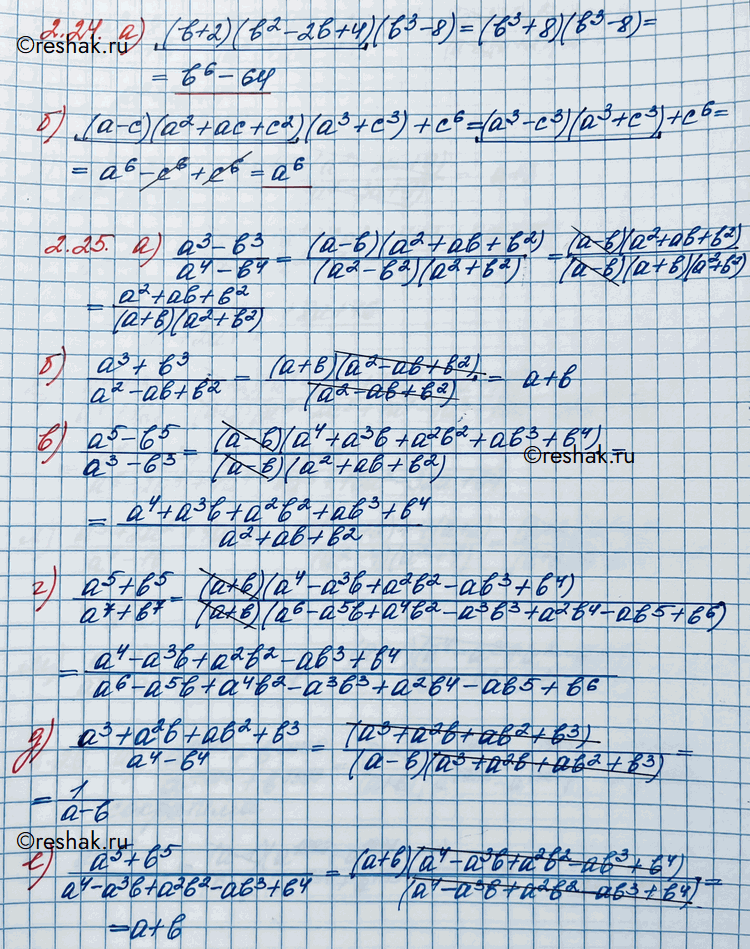 2.24. а) (b+2)(b²-2b+4)(b³-8) = (b³+8)(b³-8) =
©reshak.ru
= b⁶-64
б) (a-c)(a²+ac+c²)(a³+c³)+c⁶ = (a³-c³)(a³+c³)+c⁶ =
= a⁶-c⁶+c⁶ = a⁶
2.25. а) (a³-b³)/(a⁴-b⁴) = ((a-b)(a²+ab+b²))/((a²-b²)(a²+b²)) = ((a-b)(a²+ab+b²))/((a-b)(a+b)(a²+b²))
= (a²+ab+b²)/((a+b)(a²+b²))
б) (a³+b³)/(a²-ab+b²) = ((a+b)(a²-ab+b²))/((a²-ab+b²)) = a+b
в) (a⁵-b⁵)/(a³-b³) = ((a-b)(a⁴+a³b+a²b²+ab³+b⁴))/((a-b)(a²+ab+b²)) =
©reshak.ru
= (a⁴+a³b+a²b²+ab³+b⁴)/(a²+ab+b²)
г) (a⁵+b⁵)/(a⁷+b⁷) = ((a+b)(a⁴-a³b+a²b²-ab³+b⁴))/((a+b)(a⁶-a⁵b+a⁴b²-a³b³+a²b⁴-ab⁵+b⁶))
= (a⁴-a³b+a²b²-ab³+b⁴)/(a⁶-a⁵b+a⁴b²-a³b³+a²b⁴-ab⁵+b⁶)
д) (a³+a²b+ab²+b³)/(a⁴-b⁴) = ((a³+a²b+ab²+b³))/((a-b)(a³+a²b+ab²+b³)) =
= 1/(a-b)
©reshak.ru
е) (a⁵+b⁵)/(a⁴-a³b+a²b²-ab³+b⁴) = ((a+b)(a⁴-a³b+a²b²-ab³+b⁴))/((a⁴-a³b+a²b²-ab³+b⁴)) =
= a+b